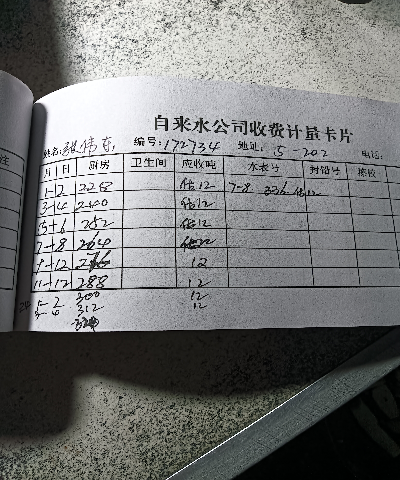 注
自来水公司收费计量卡片
姓名: 张伟东 编号: 172734 地址: 5-202 电话:
月 日 厨房 卫生间 应收吨 水表号 封铅号 楼校
1-2 228 估12 7-8 336 估12
3-4 240 估12
5-6 252 估12
7-8 264 估12
9-10 276 12
11-12 288 12
1-2 300 12
3-4 312 12
324